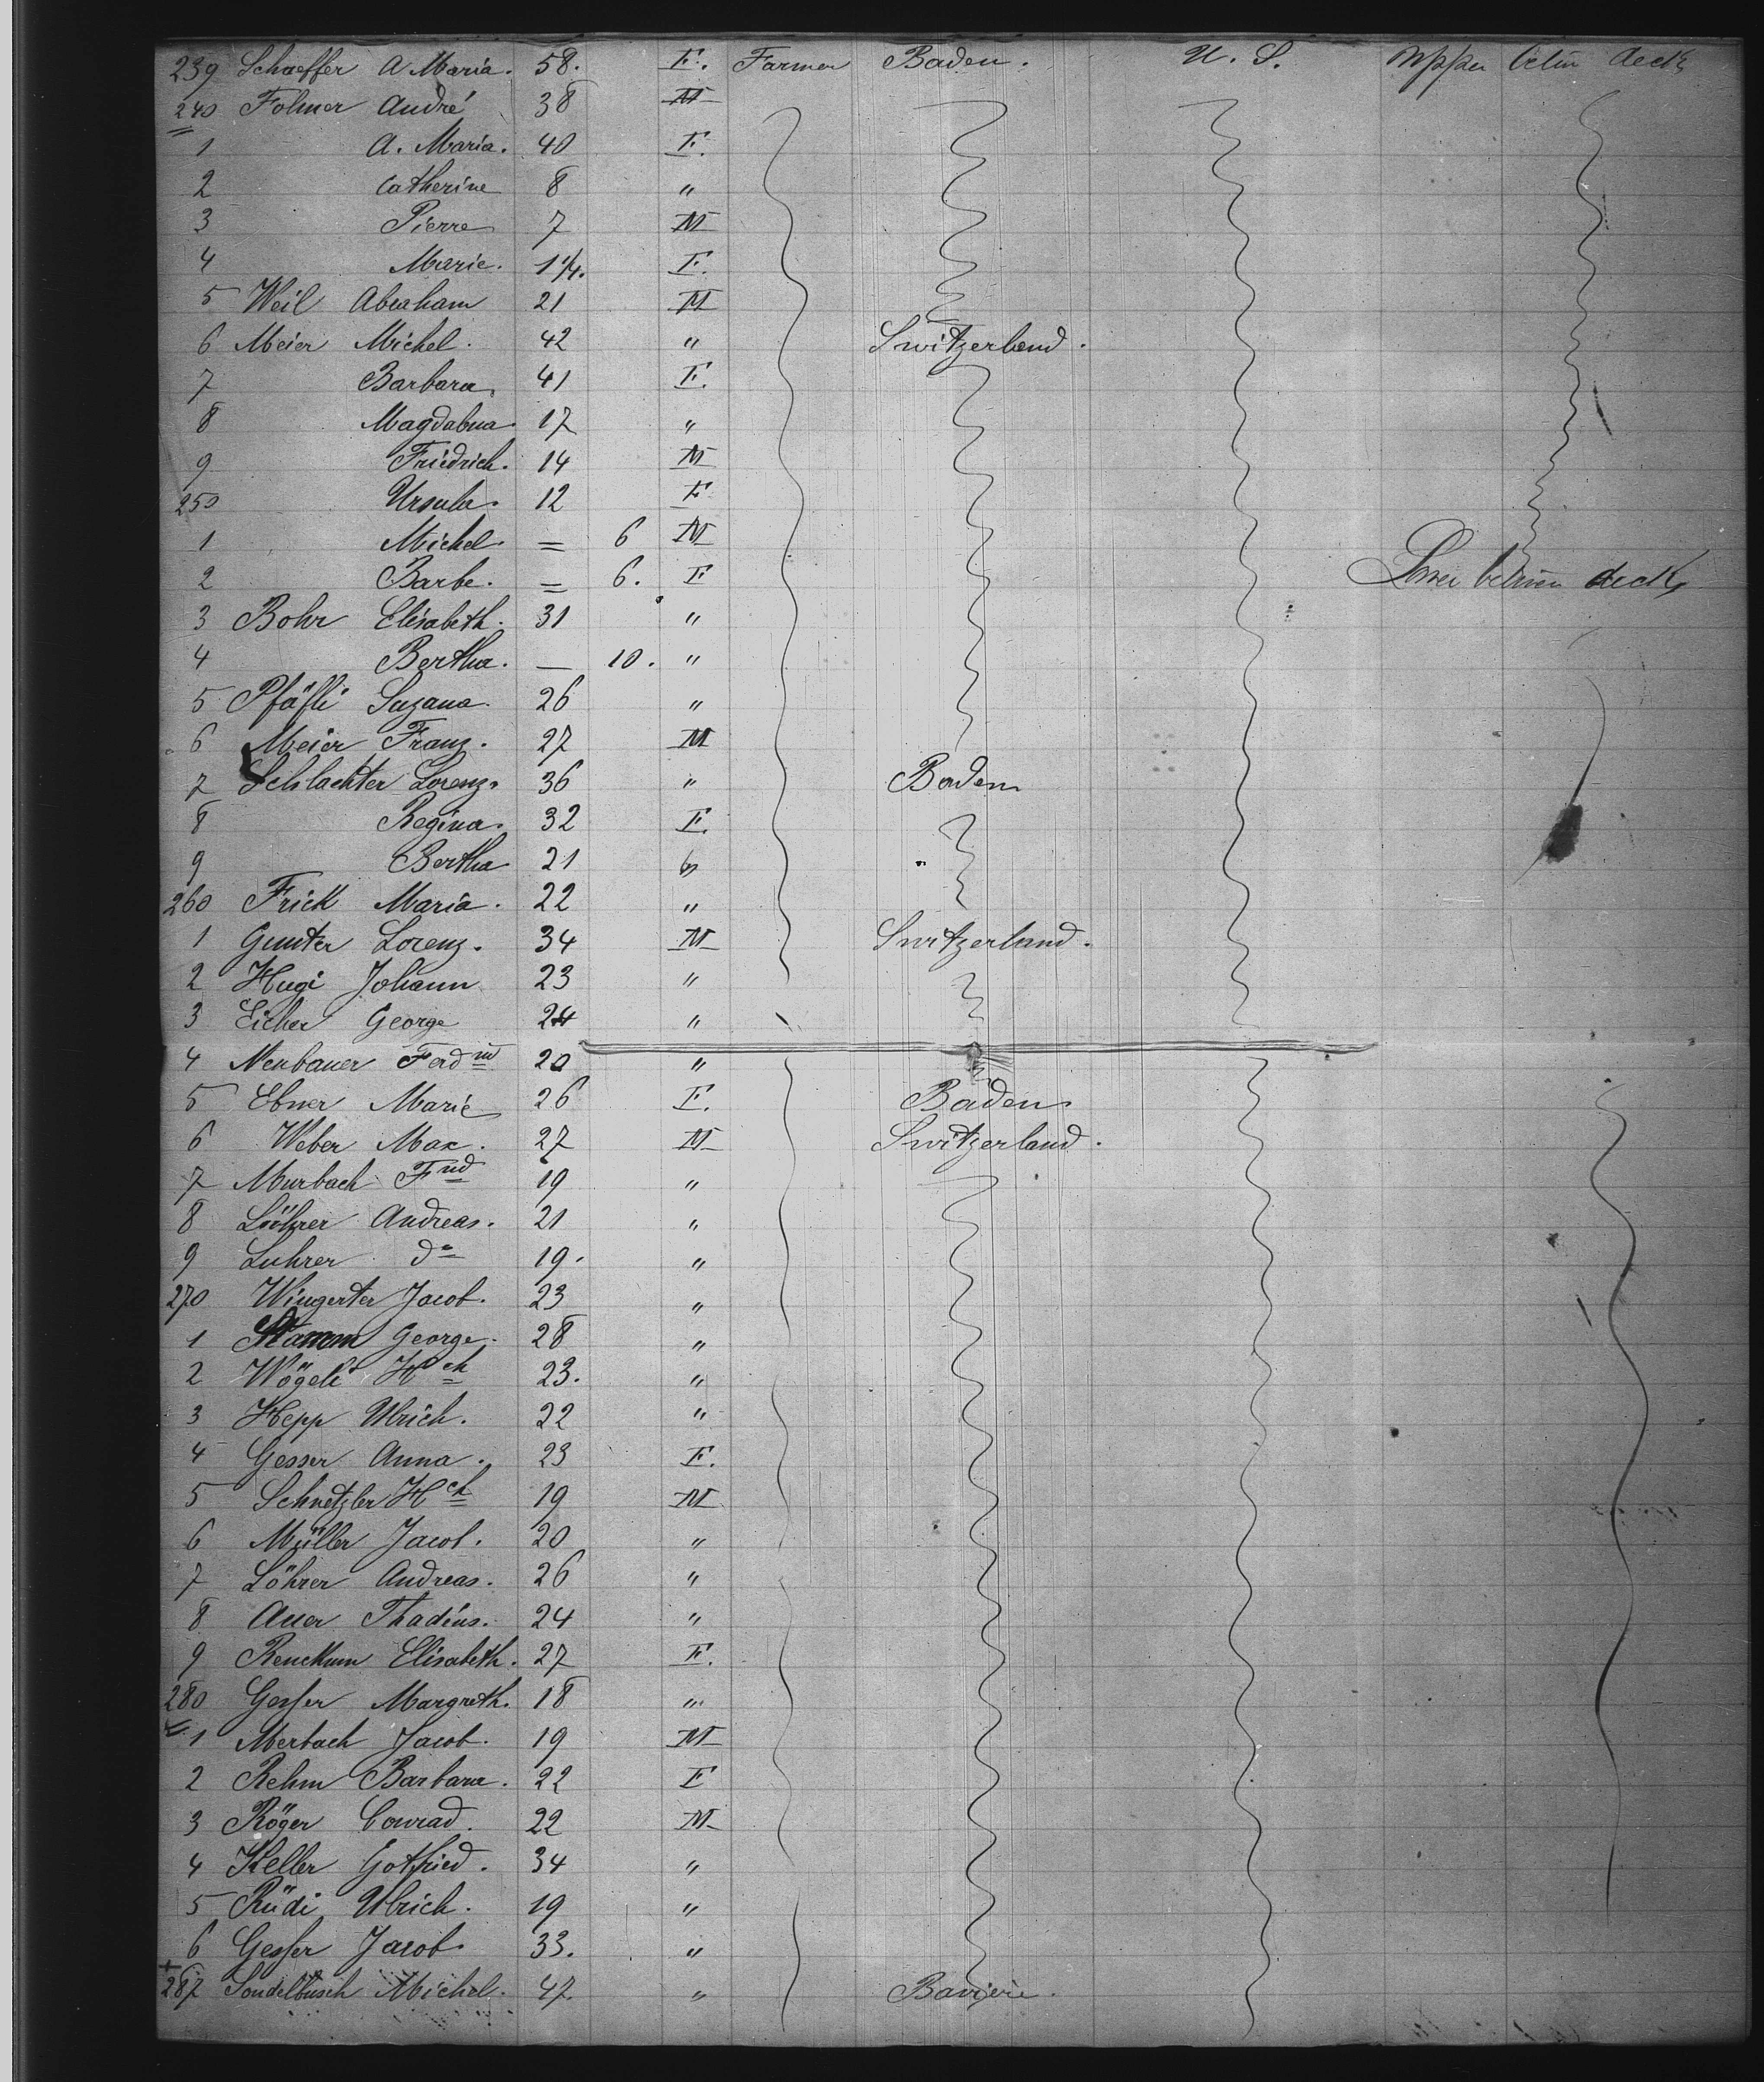 239 Schaeffer A Maria. 58. F. Farmer Baden. U. S. Upper betw deck
240 Folmer André 38 M
1 A. Maria. 40 F.
2 Catherine 8 "
3 Pierre 7 M
4 Marie. 1 1/4. F.
5 Weil Abraham 21 M
6 Meier Michel. 42 " Switzerland.
7 Barbara. 41 F.
8 Magdalena 17 "
9 Friedrich. 14 M
250 Ursula. 12 F
1 Michel. = 6 M
2 Barbe. = 6. F Lower between deck
3 Bohr Elisabeth. 31 "
4 Bertha. — 10. "
5 Pfäfli Suzana. 26 "
6 Meier Franz. 27 M
7 Schlachter Lorenz. 36 " Baden
8 Regina. 32 F.
9 Bertha 21 "
260 Frick Maria. 22 "
1 Gunter Lorenz. 34 M Switzerland.
2 Hugi Johann 23 "
3 Eicher George 24 "
4 Neubauer Ferdnd 20 "
5 Ebner Marie 26 F. Baden
6 Weber Max. 27 M Switzerland.
7 Murbach Fnd 19 "
8 Löhrer Andreas. 21 "
9 Luhrer do 19. "
270 Wingerter Jacob. 23 "
1 Stamm George. 28 "
2 Wögeli Hch 23. "
3 Hepp Ulrich. 22 "
4 Gesser Anna. 23 F.
5 Schnetzler Hch 19 M
6 Müller Jacob. 20 "
7 Löhrer Andreas. 26 "
8 Auer Thadeus. 24 "
9 Renckum Elisabeth. 27 F.
280 Gesser Margreth. 18 "
1 Merbach Jacob. 19 M
2 Rehm Barbara. 22 F
3 Röger Conrad. 22 M
4 Keller Gotfried. 34 "
5 Rüdi Ulrich. 19 "
6 Gesser Jacob 33. "
287 Sondelbusch Michel. 47. " Baviere.